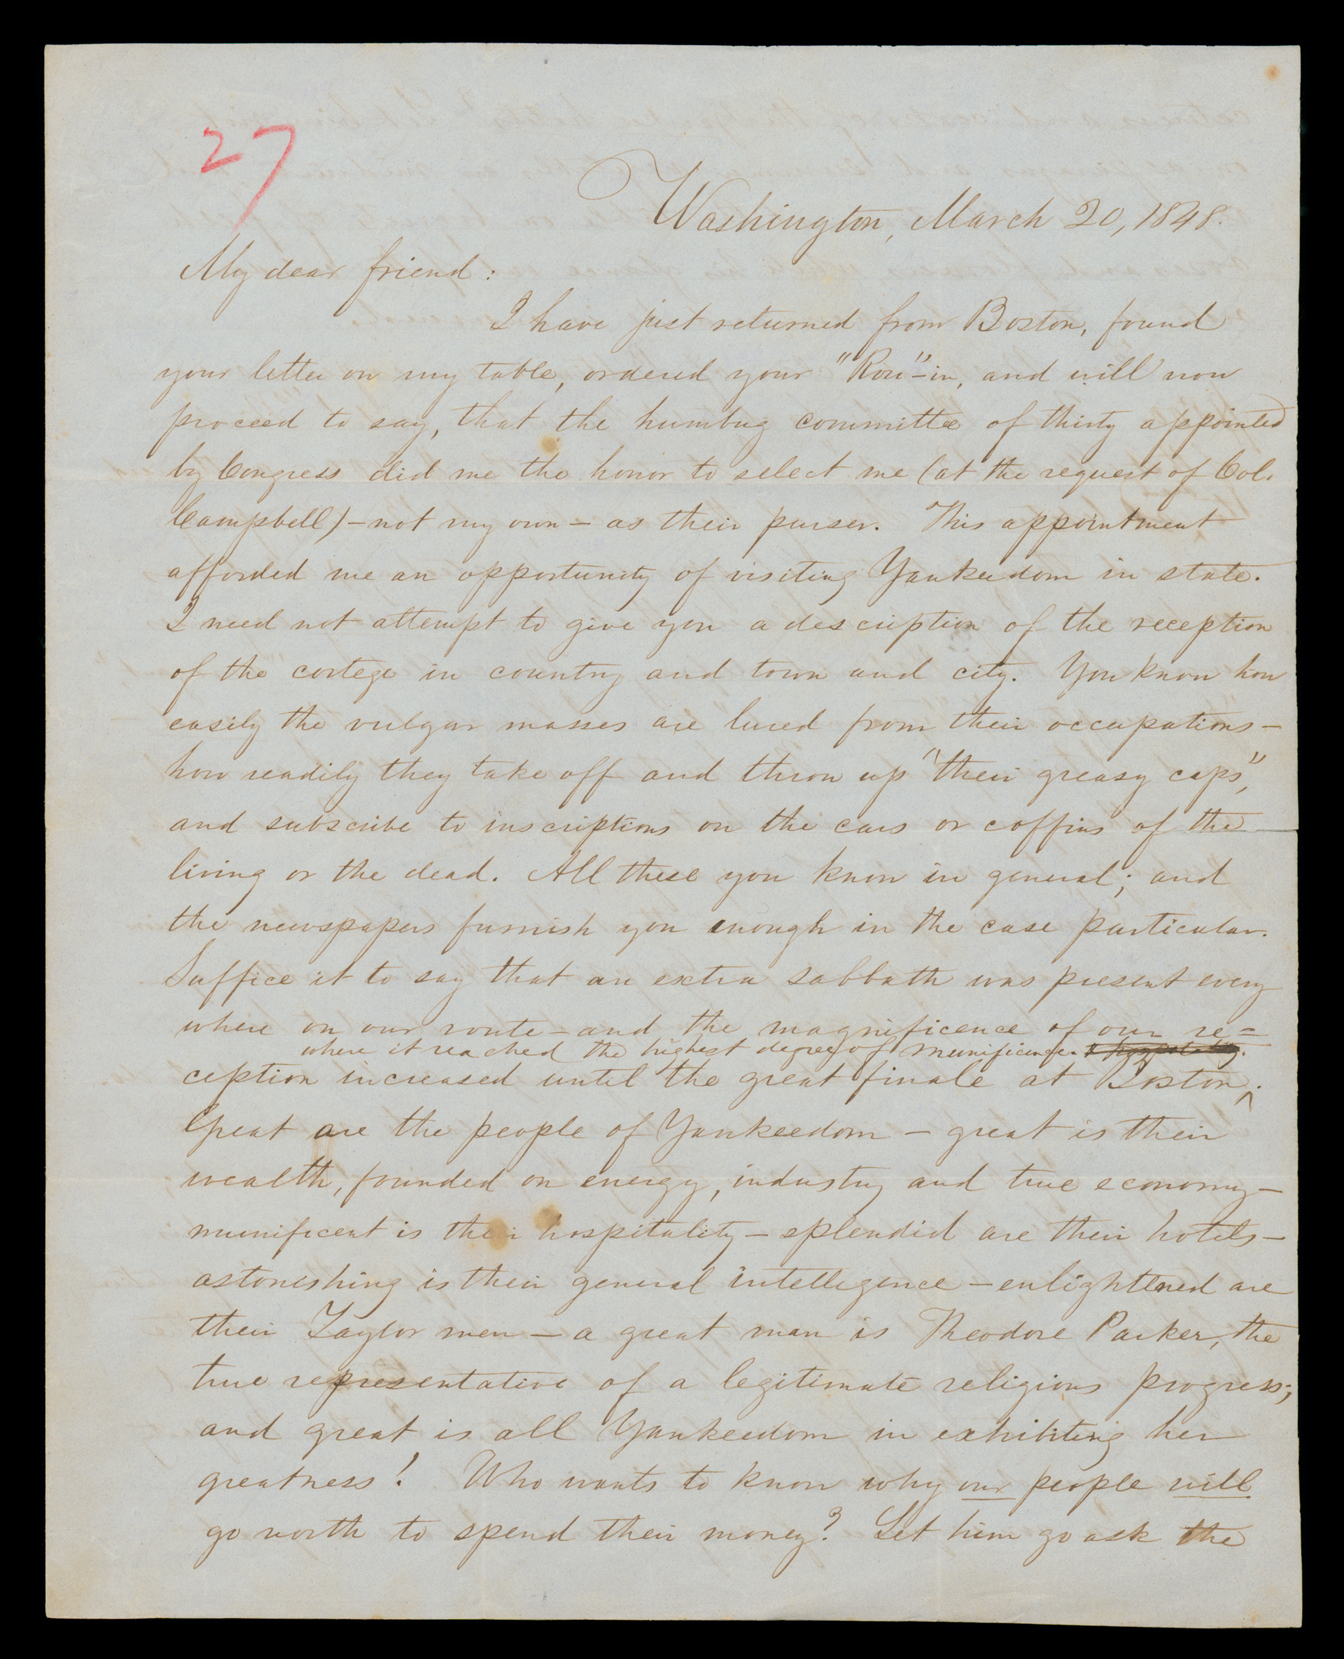 27
Washington, March 20, 1848.
My dear friend:
I have just returned from Boston, found
your letter on my table, ordered your "Row"-in, and will now
proceed to say, that the humbug committee of thirty appointed
by Congress did me the honor to select me (at the request of Col.
Campbell) - not my own - as their purser. This appointment
afforded me an opportunity of visiting Yankeedom in state.
I need not attempt to give you a description of the reception
of the cortege in country and town and city. You know how
easily the vulgar masses are lured from their occupations -
how readily they take off and throw up "their greasy caps",
and subscribe to inscriptions on the cars or coffins of the
living or the dead. All these you know in general; and
the newspapers furnish you enough in the case particular.
Suffice it to say that an extra sabbath was present every
where on our route - and the magnificence of our re=
where it reached the highest degree of munificence & hospitality.
ception increased until the great finale at Boston ^.
Great are the people of Yankeedom - great is their
wealth, founded on energy, industry and true economy -
munificent is their hospitality - splendid are their hotels -
astonishing is their general intelligence - enlightened are
their Taylor men - a great man is Theodore Parker, the
true representative of a legitimate religious progress;
and great is all Yankeedom in exhibiting her
greatness! Who wants to know why our people will
go north to spend their money? Let him go ask the